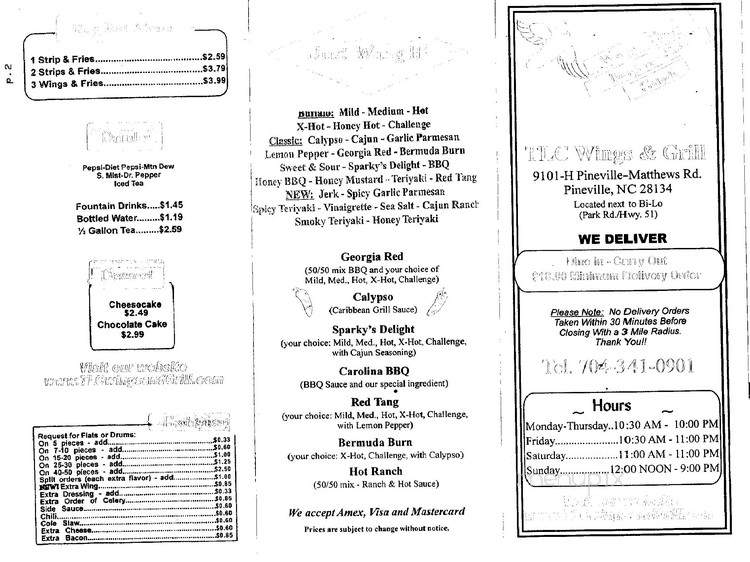 P. 2
1 Strip & Fries.....$2.59
2 Strips & Fries.....$3.79
3 Wings & Fries.....$3.99
Drinks
Pepsi-Diet Pepsi-Mtn Dew
S. Mist-Dr. Pepper
Iced Tea
Fountain Drinks.....$1.45
Bottled Water.........$1.19
½ Gallon Tea.........$2.59
Dessert
Cheesecake
$2.49
Chocolate Cake
$2.99
Visit our website
Request for Flats or Drums:
On 5 pieces - add.....$0.33
On 7-10 pieces - add.....$0.60
On 15-20 pieces - add.....$1.00
On 25-30 pieces - add.....$1.25
On 40-50 pieces - add.....$2.50
Split orders (each extra flavor) - add.....$1.00
NEW! Extra Wing.....$0.85
Extra Dressing - add.....$0.33
Extra Order of Celery.....$0.85
Side Sauce.....$0.60
Chili.....$0.60
Cole Slaw.....$0.60
Extra Cheese.....$0.60
Extra Bacon.....$0.85
Just Wing It!
Buffalo: Mild - Medium - Hot
X-Hot - Honey Hot - Challenge
Classic: Calypso - Cajun - Garlic Parmesan
Lemon Pepper - Georgia Red - Bermuda Burn
Sweet & Sour - Sparky's Delight - BBQ
Honey BBQ - Honey Mustard - Teriyaki - Red Tang
NEW: Jerk - Spicy Garlic Parmesan
Spicy Teriyaki - Vinaigrette - Sea Salt - Cajun Ranch
Smoky Teriyaki - Honey Teriyaki
Georgia Red
(50/50 mix BBQ and your choice of
Mild, Med., Hot, X-Hot, Challenge)
Calypso
(Caribbean Grill Sauce)
Sparky's Delight
(your choice: Mild, Med., Hot, X-Hot, Challenge,
with Cajun Seasoning)
Carolina BBQ
(BBQ Sauce and our special ingredient)
Red Tang
(your choice: Mild, Med., Hot, X-Hot, Challenge,
with Lemon Pepper)
Bermuda Burn
(your choice: X-Hot, Challenge, with Calypso)
Hot Ranch
(50/50 mix - Ranch & Hot Sauce)
We accept Amex, Visa and Mastercard
Prices are subject to change without notice.
TLC Wings & Grill
9101-H Pineville-Matthews Rd.
Pineville, NC 28134
Located next to Bi-Lo
(Park Rd./Hwy. 51)
WE DELIVER
Dine in - Carry Out
$10.00 Minimum Delivery Order
Please Note: No Delivery Orders
Taken Within 30 Minutes Before
Closing With a 3 Mile Radius.
Thank You!!
Tel. 704-341-0901
~ Hours ~
Monday-Thursday..10:30 AM - 10:00 PM
Friday...............10:30 AM - 11:00 PM
Saturday...............11:00 AM - 11:00 PM
Sunday...............12:00 NOON - 9:00 PM
menupix